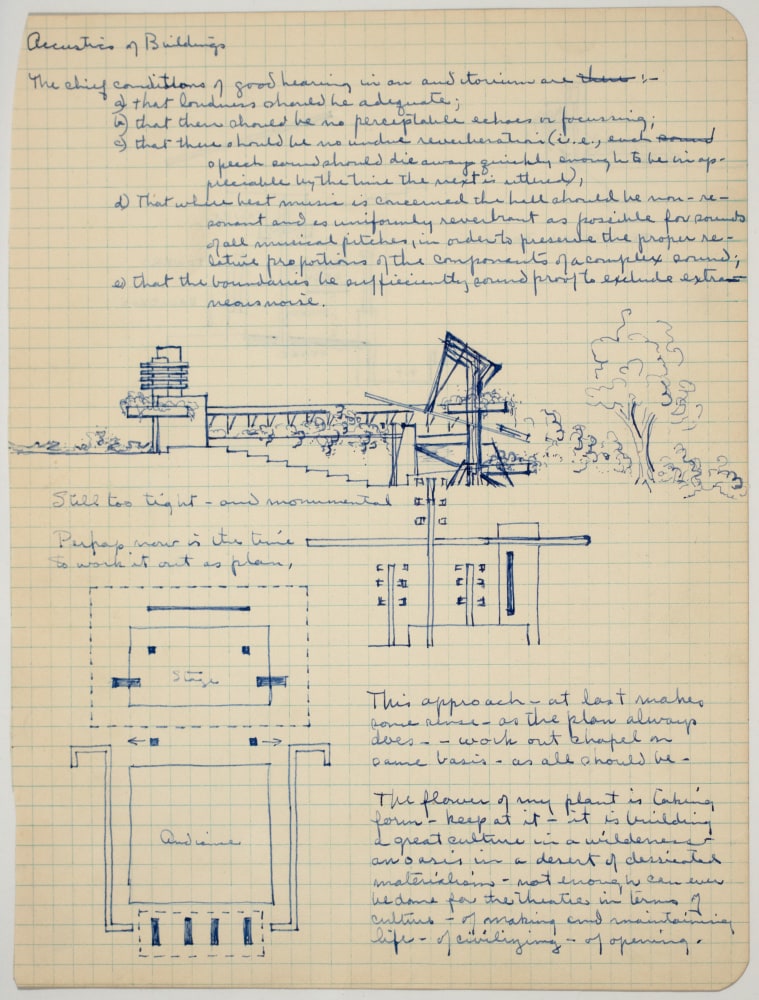 Accustics of Buildings
The chief conditions of good hearing in an auditorium are these :-
a) that loudness should be adequate;
b) that there should be no perceptable echoes or focussing;
c) that there should be no undue reverberation (i.e., each sound
speech sound should die away quickly enough to be in ap-
preciable by the time the next is uttered);
d) That where best music is concerned the hall should be non-re-
sonant and as uniformly reverbrant as possible for sounds
of all musical pitches, in order to preserve the proper re-
lative proportions of the components of a complex sound;
e) that the boundaries be sufficiently sound proof to exclude extra-
neous noise.
Still too tight - and monumental
Perhap now is the time
to work it out as plan,
Stage
Audience
This approach - at last makes
some sense - as the plan always
does - - work out chapel on
same basis - as all should be -
The flower of my plant is taking
form - keep at it - it is building
a great culture in a wilderness -
an oasis in a desert of dessicated
materialism - not enough can ever
be done for the theatre in terms of
culture - of making and maintaining
life - of civilizing - of opening.